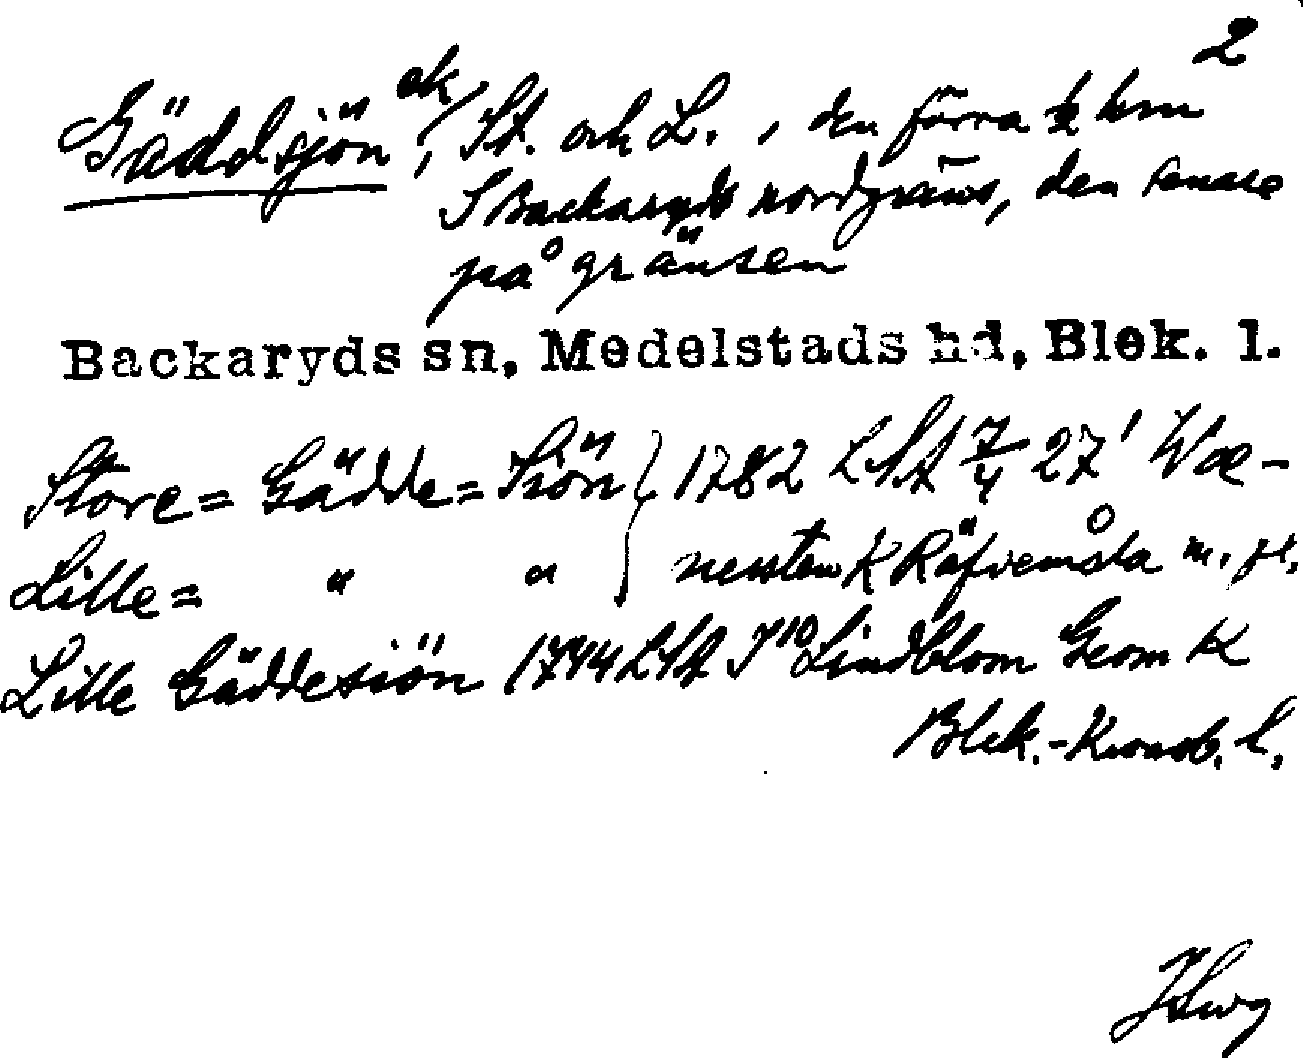 2
Gäddsjön, ek, St. och L., den förra ½ km
S Backaryds nordgräns, den senare
på gränsen
Backaryds sn, Medelstads hd, Blek. l.
Store= Gädde= Siön } 1782 LSA 7/4 27' Wæ-
Lille= " " } nesten K Räfvemåla m. fl.
Lille Gäddesiön 1744 LSA J10 Lindblom Geom K
Blek.-Kronob. l.